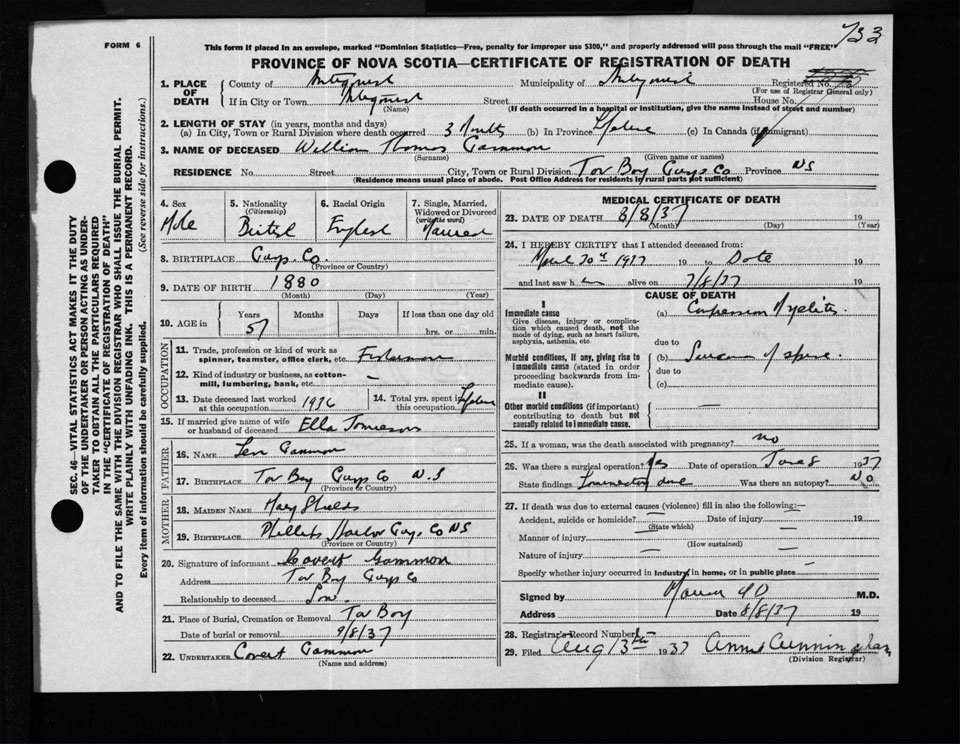 733
FORM 6
This form if placed in an envelope, marked "Dominion Statistics—Free, penalty for improper use $300," and properly addressed will pass through the mail "FREE"
PROVINCE OF NOVA SCOTIA—CERTIFICATE OF REGISTRATION OF DEATH
SEC. 46—VITAL STATISTICS ACT MAKES IT THE DUTY
OF THE UNDERTAKER OR PERSON ACTING AS UNDER-
TAKER TO OBTAIN ALL THE PARTICULARS REQUIRED
IN THE "CERTIFICATE OF REGISTRATION OF DEATH"
AND TO FILE THE SAME WITH THE DIVISION REGISTRAR WHO SHALL ISSUE THE BURIAL PERMIT.
WRITE PLAINLY WITH UNFADING INK. THIS IS A PERMANENT RECORD.
Every item of information should be carefully supplied. (See reverse side for instructions.)
1. PLACE OF DEATH
County of Antigonish Municipality of Antigonish Registered No.
(For use of Registrar General only)
If in City or Town Antigonish Street House No.
(Name) (If death occurred in a hospital or institution, give the name instead of street and number)
2. LENGTH OF STAY (in years, months and days)
(a) In City, Town or Rural Division where death occurred 3 Months (b) In Province Lifetime (c) In Canada (if immigrant)
3. NAME OF DECEASED William Thomas Gammon
(Surname) (Given name or names)
RESIDENCE No. Street City, Town or Rural Division Tor Bay Guys Co Province NS
(Residence means usual place of abode. Post Office Address for residents in rural parts not sufficient)
4. Sex Male
5. Nationality (Citizenship) British
6. Racial Origin English
7. Single, Married, Widowed or Divorced (write the word) Married
8. BIRTHPLACE Guys. Co.
(Province or Country)
9. DATE OF BIRTH 1880
(Month) (Day) (Year)
10. AGE in Years 57 Months Days If less than one day old
hrs. or min.
OCCUPATION
11. Trade, profession or kind of work as spinner, teamster, office clerk, etc. Fisherman
12. Kind of industry or business, as cotton-mill, lumbering, bank, etc. —
13. Date deceased last worked at this occupation 1936
14. Total yrs. spent in this occupation Lifetime
15. If married give name of wife or husband of deceased Ella
FATHER
16. NAME Gammon
17. BIRTHPLACE Tor Bay Guys Co N.S
(Province or Country)
MOTHER
18. MAIDEN NAME Mary Shields
19. BIRTHPLACE Harbor Guys Co NS
(Province or Country)
20. Signature of informant Covert Gammon
Address Tor Bay Guys Co
Relationship to deceased Son.
21. Place of Burial, Cremation or Removal Tor Bay
Date of burial or removal 9/8/37
22. UNDERTAKER Covert Gammon
(Name and address)
MEDICAL CERTIFICATE OF DEATH
23. DATE OF DEATH 8/8/37 19
(Month) (Day) (Year)
24. I HEREBY CERTIFY that I attended deceased from:
1937 19 to Date 19
and last saw h alive on 7/8/37 19
CAUSE OF DEATH
I
Immediate cause
Give disease, injury or complication which caused death, not the mode of dying, such as heart failure, asphyxia, asthenia, etc.
(a) Compression Myelitis
due to
Morbid conditions, if any, giving rise to immediate cause (stated in order proceeding backwards from immediate cause).
(b) of spine.
due to
(c)
II
Other morbid conditions (if important) contributing to death but not causally related to immediate cause. —
25. If a woman, was the death associated with pregnancy? no
26. Was there a surgical operation? Yes Date of operation 1937
State findings Laminectomy done Was there an autopsy? No
27. If death was due to external causes (violence) fill in also the following:—
Accident, suicide or homicide? — Date of injury — 19
(State which)
Manner of injury —
(How sustained)
Nature of injury —
Specify whether injury occurred in industry, in home, or in public place —
Signed by M.D.
Address Date 8/8/37 19
28. Registrar's Record Number —
29. Filed Aug 13th 1937 Cunningham
(Division Registrar)